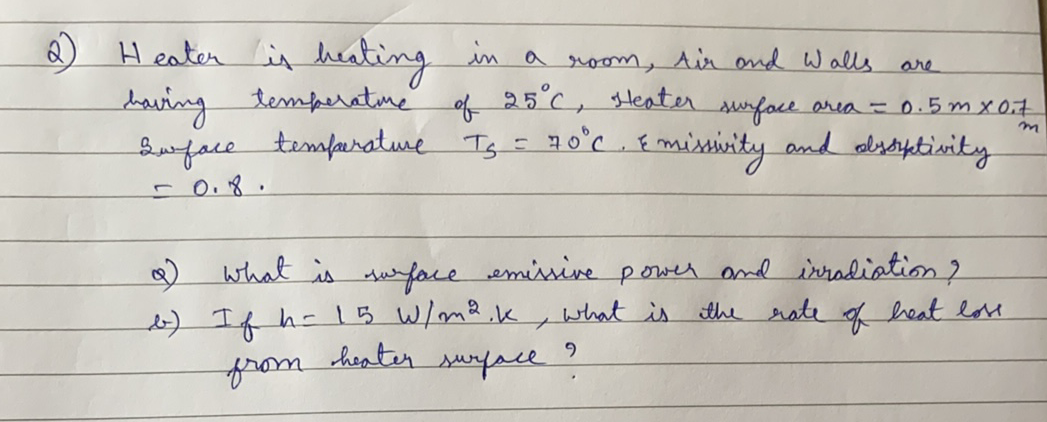 Q) Heater is heating in a room, Air and Walls are
having temperature of 25°C, Heater surface area = 0.5m x 0.7
m
Surface temperature Ts = 70°C. Emissivity and absorptivity
= 0.8.
a) What is surface emissive power and irradiation?
b) If h = 15 W/m2.k, what is the rate of heat loss
from heater surface?